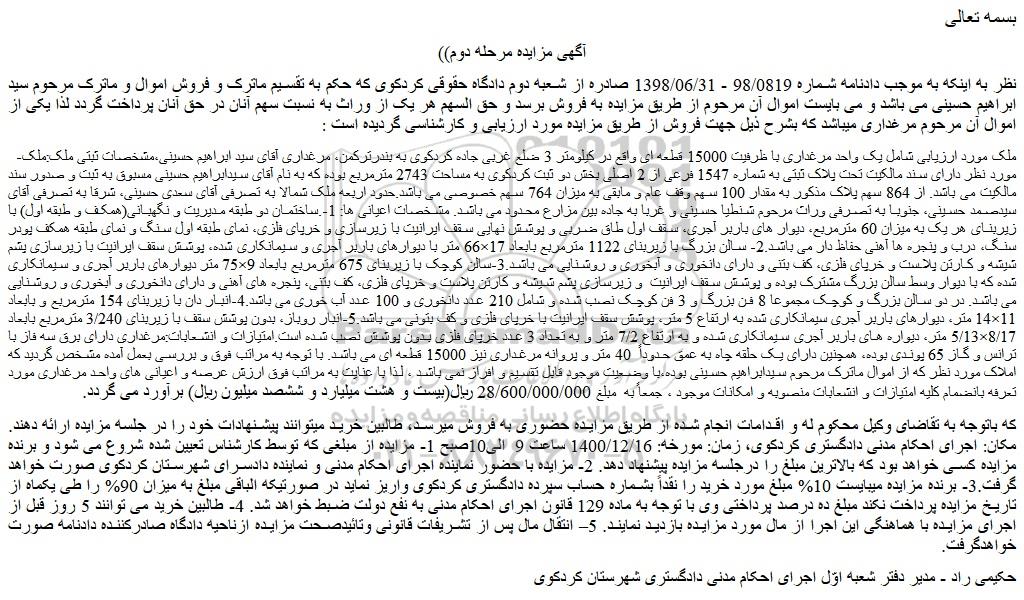 بسمه تعالی
آگهی مزایده مرحله دوم))
نظر به اینکه به موجب دادنامه شماره 98/0819 ـ 1398/06/31 صادره از شعبه دوم دادگاه حقوقی کردکوی که حکم به تقسیم ماترک و فروش اموال و ماترک مرحوم سید
ابراهیم حسینی می باشد و می بایست اموال آن مرحوم از طریق مزایده به فروش برسد و حق السهم هر یک از وراث به نسبت سهم آنان در حق آنان پرداخت گردد لذا یکی از
اموال آن مرحوم مرغداری میباشد که بشرح ذیل جهت فروش از طریق مزایده مورد ارزیابی و کارشناسی گردیده است :
ملک مورد ارزیابی شامل یک واحد مرغداری با ظرفیت 15000 قطعه ای واقع در کیلومتر 3 ضلع غربی جاده کردکوی به بندرترکمن، مرغداری آقای سید ابراهیم حسینی،مشخصات ثبتی ملک:ملک-
مورد نظر دارای سند مالکیت تحت پلاک ثبتی به شماره 1547 فرعی از 2 اصلی بخش دو ثبت کردکوی به مساحت 2743 مترمربع بوده که به نام آقای سیدابراهیم حسینی مسبوق به ثبت و صدور سند
مالکیت می باشد. از 864 سهم پلاک مذکور به مقدار 100 سهم وقف عام و مابقی به میزان 764 سهم خصوصی می باشد.حدود اربعه ملک شمالا به تصرفی آقای سعدی حسینی، شرقا به تصرفی آقای
سیدصمد حسینی، جنوبا به تصرفی وراث مرحوم شنطیا حسینی و غربا به جاده بین مزارع محدود می باشد. مشخصات اعیانی ها: 1-.ساختمان دو طبقه مدیریت و نگهبانی(همکف و طبقه اول) با
زیربنای هر یک به میزان 60 مترمربع، دیوار های باربر آجری، سقف اول طاق ضربی و پوشش نهایی سقف ایرانیت با زیرسازی و خرپای فلزی، نمای طبقه اول سنگ و نمای طبقه همکف پودر
سنگ، درب و پنجره ها آهنی حفاظ دار می باشد.2- سالن بزرگ با زیربنای 1122 مترمربع بابعاد 17×66 متر با دیوارهای باربر آجری و سیمانکاری شده، پوشش سقف ایرانیت با زیرسازی پشم
شیشه و کارتن پلاست و خرپای فلزی، کف بتنی و دارای دانخوری و آبخوری و روشنایی می باشد.3-سالن کوچک با زیربنای 675 مترمربع بابعاد 9×75 متر دیوارهای باربر آجری و سیمانکاری
شده که با دیوار وسط سالن بزرگ مشترک بوده و پوشش سقف ایرانیت و زیرسازی پشم شیشه و کارتن پلاست و خرپای فلزی، کف بتنی، پنجره های آهنی و دارای دانخوری و آبخوری و روشنایی
می باشد. در دو سالن بزرگ و کوچک مجموعا 8 فن بزرگ و 3 فن کوچک نصب شده و شامل 210 عدد دانخوری و 100 عدد آب خوری می باشد.4-انبار دان با زیربنای 154 مترمربع و بابعاد
11×14 متر، دیوارهای باربر آجری سیمانکاری شده به ارتفاع 5 متر، پوشش سقف ایرانیت با خرپای فلزی و کف بتونی می باشد.5-انبار روباز، بدون پوشش سقف با زیربنای 3/240 مترمربع بابعاد
8/17×5/13 متر، دیواره های باربر آجری سیمانکاری شده و به ارتفاع 7/2 متر و به تعداد 3 عدد خرپای فلزی بدون پوشش نصب شده است.امتیازات و انشعابات:مرغداری دارای برق سه فاز با
ترانس و گاز 65 پوندی بوده، همچنین دارای یک حلقه چاه به عمق حدودأ 40 متر و پروانه مرغداری نیز 15000 قطعه ای می باشد. با توجه به مراتب فوق و بررسی بعمل آمده مشخص گردید که
املاک مورد نظر که از اموال ماترک مرحوم سیدابراهیم حسینی بوده،با وضعیت موجود قابل تقسیم و افراز نمی باشد ، لذا با عنایت به مراتب فوق ارزش عرصه و اعیانی های واحد مرغداری مورد
تعرفه بانضمام کلیه امتیازات و انشعابات منصوبه و امکانات موجود ، جمعأ به مبلغ 28/600/000/000 ریال(بیست و هشت میلیارد و ششصد میلیون ریال) برآورد می گردد.
که باتوجه به تقاضای وکیل محکوم له و اقدامات انجام شده از طریق مزایده حضوری به فروش میرسد، طالبین خرید میتوانند پیشنهادات خود را در جلسه مزایده ارائه دهند.
مکان: اجرای احکام مدنی دادگستری کردکوی، زمان: مورخه: 1400/12/16 ساعت 9 الی10صبح 1- مزایده از مبلغی که توسط کارشناس تعیین شده شروع می شود و برنده
مزایده کسی خواهد بود که بالاترین مبلغ را درجلسه مزایده پیشنهاد دهد. 2- مزایده با حضور نماینده اجرای احکام مدنی و نماینده دادسرای شهرستان کردکوی صورت خواهد
گرفت.3- برنده مزایده میبایست 10% مبلغ مورد خرید را نقدأ بشماره حساب سپرده دادگستری کردکوی واریز نماید در صورتیکه الباقی مبلغ به میزان 90% را طی یکماه از
تاریخ مزایده پرداخت نکند مبلغ ده درصد پرداختی وی با توجه به ماده 129 قانون اجرای احکام مدنی به نفع دولت ضبط خواهد شد. 4- طالبین خرید می توانند 5 روز قبل از
اجرای مزایده با هماهنگی این اجرا از مال مورد مزایده بازدید نمایند. 5– انتقال مال پس از تشریفات قانونی وتائیدصحت مزایده ازناحیه دادگاه صادرکننده دادنامه صورت
خواهدگرفت.
حکیمی راد ـ مدیر دفتر شعبه اوّل اجرای احکام مدنی دادگستری شهرستان کردکوی